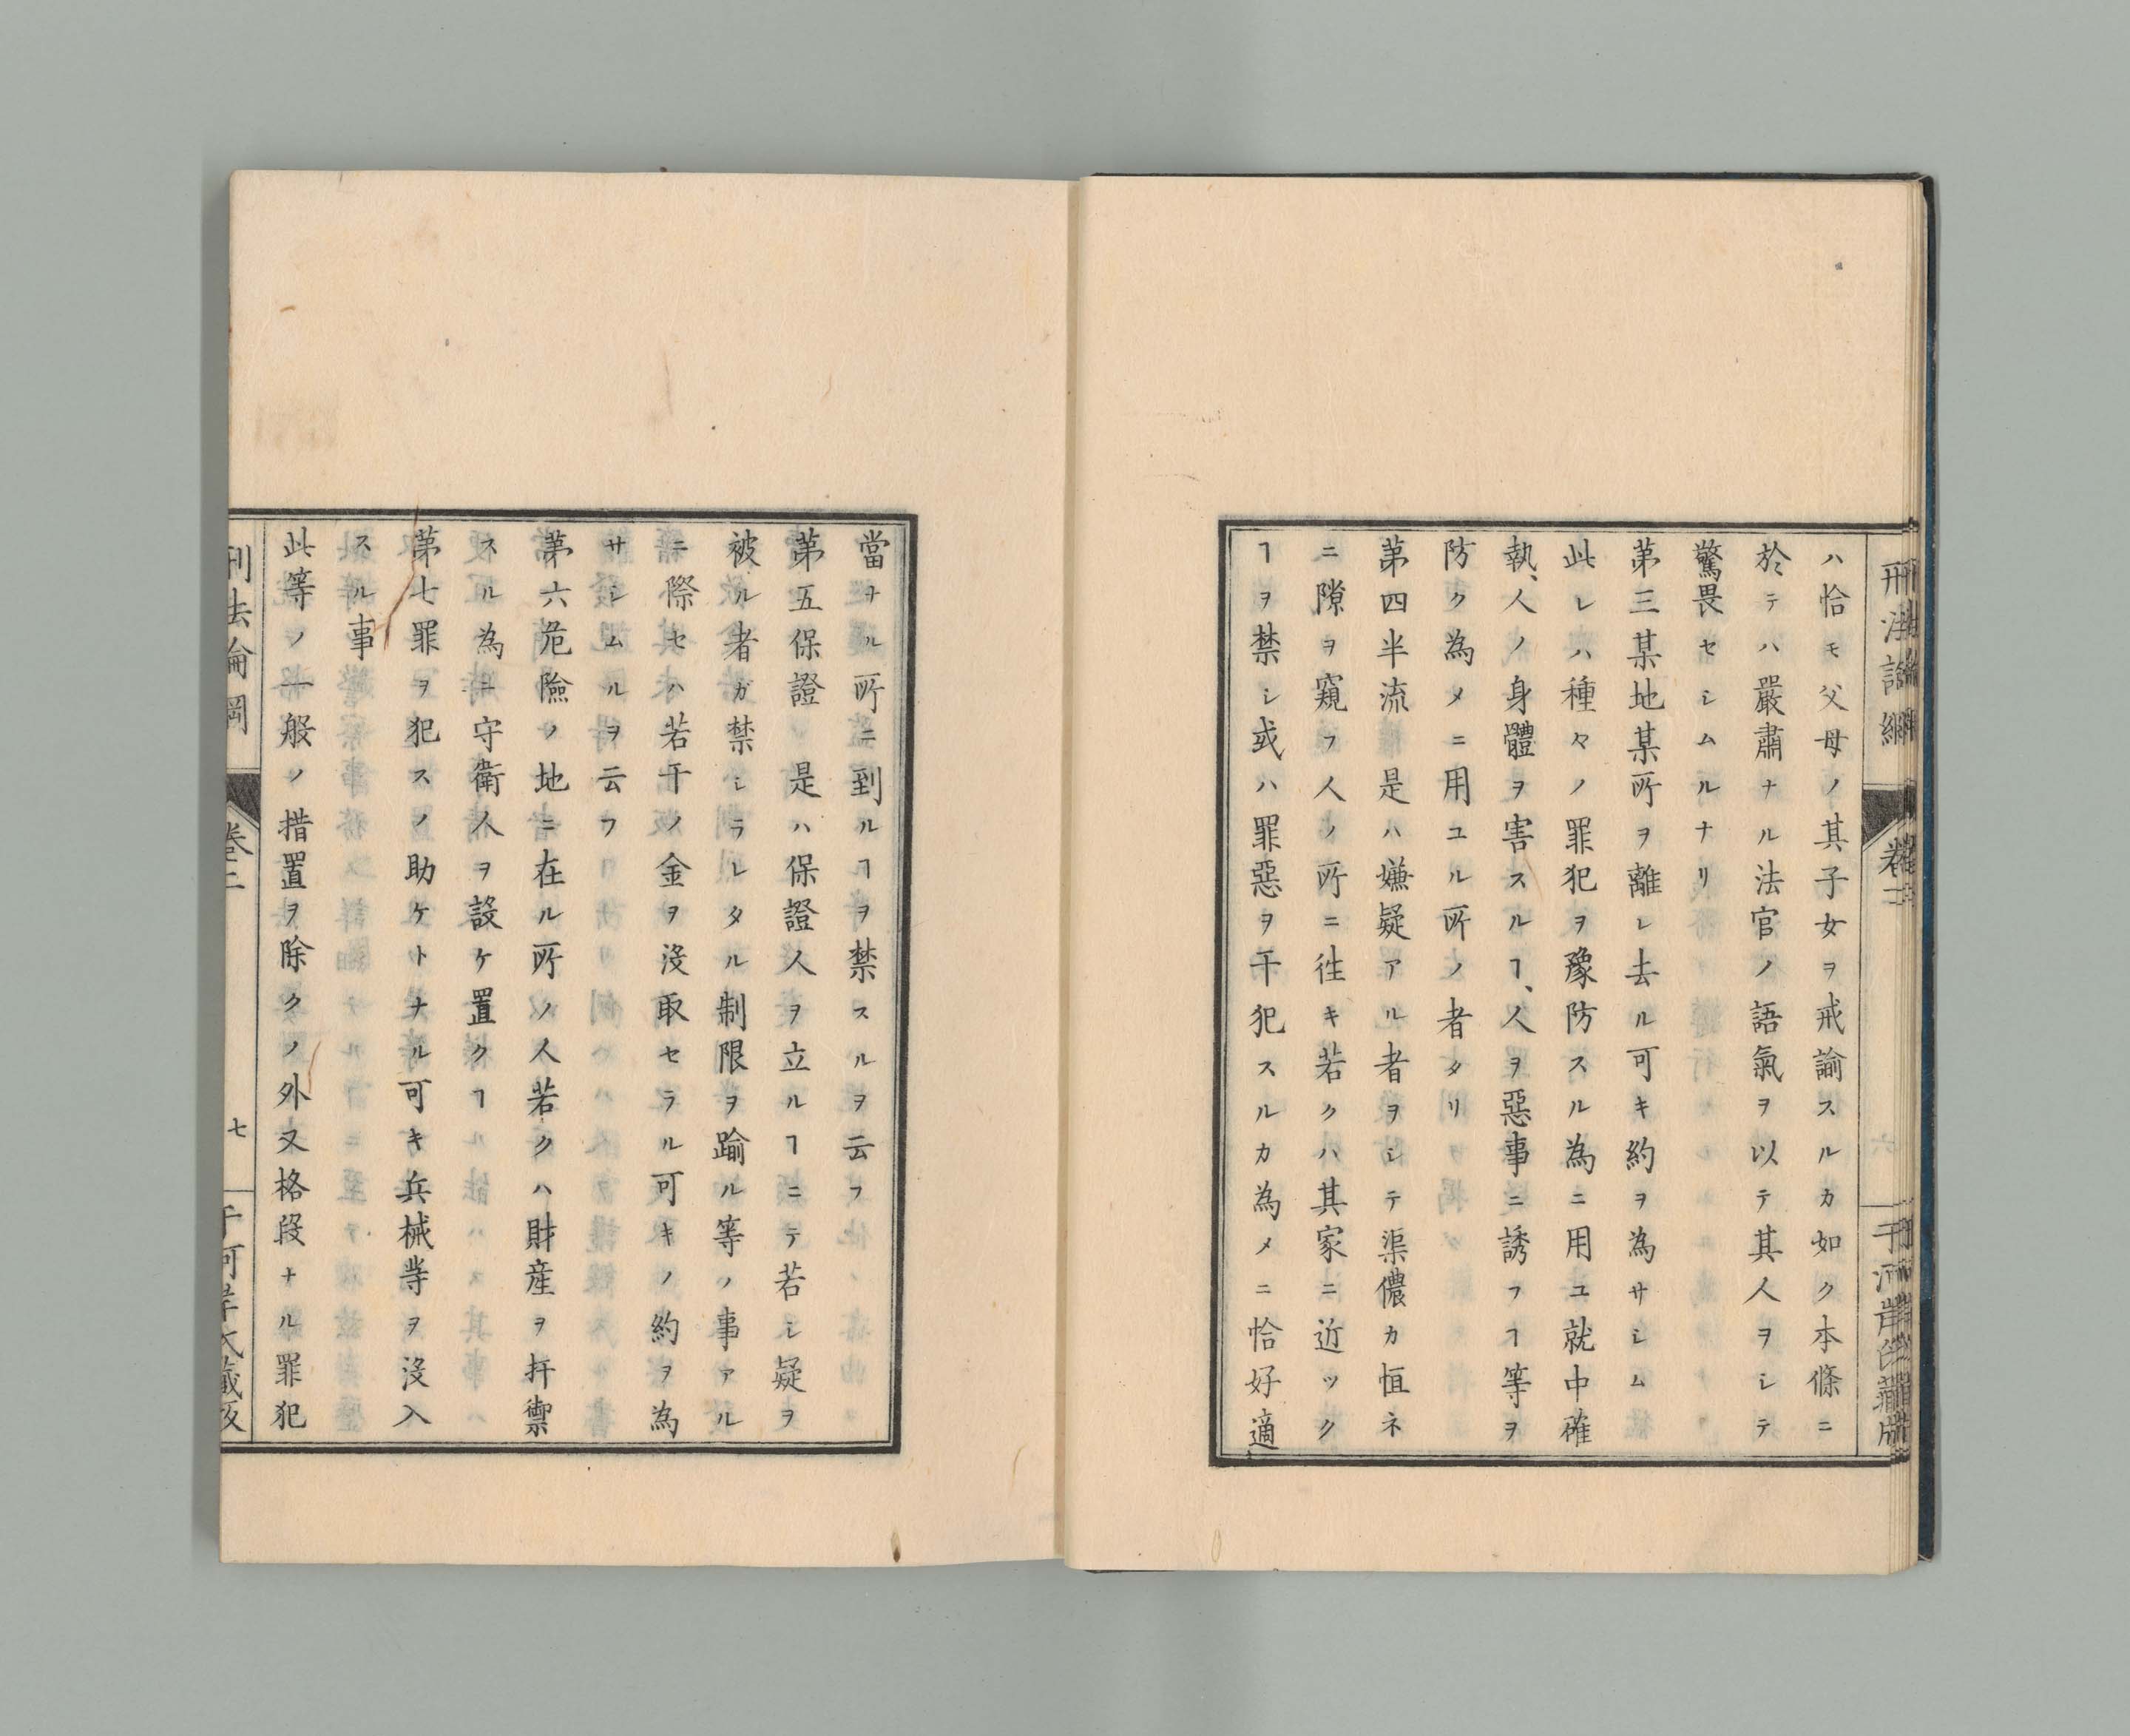 刑法論綱
卷二
ハ恰モ父母ノ其子女ヲ戒諭スルカ如ク本條ニ
於テハ嚴肅ナル法官ノ語氣ヲ以テ其人ヲシテ
驚畏セシムルナリ
第三某地某所ヲ離レ去ル可キ約ヲ為サシム
此レハ種々ノ罪犯ヲ豫防スル為ニ用ユ就中確
執、人ノ身體ヲ害スルヿ、人ヲ惡事ニ誘フヿ等ヲ
防ク為メニ用ユル所ノ者タリ
第四半流是ハ嫌疑アル者ヲシテ渠儂カ恒ネ
ニ隙ヲ窺フ人ノ所ニ徃キ若クハ其家ニ近ツク
ヿヲ禁シ或ハ罪惡ヲ干犯スルカ為メニ恰好適
當ヲル所ニ到ルヿヲ禁スルヲ云フ
第五保證是ハ保證人ヲ立ルヿニテ若シ疑ヲ
被ル者ガ禁シラレタル制限ヲ踰ル等ノ事アル
ニ際セハ若干ノ金ヲ沒取セラル可キノ約ヲ為
サシムルヲ云フ
第六危險ノ地ニ在ル所ノ人若クハ財産ヲ扞禦
スル為ニ守衛人ヲ設ケ置クヿ
第七罪ヲ犯スノ助ケトナル可キ兵械等ヲ沒入
スル事
此等ノ一般ノ措置ヲ除クノ外又格段ナル罪犯
刑法論綱
卷二
七